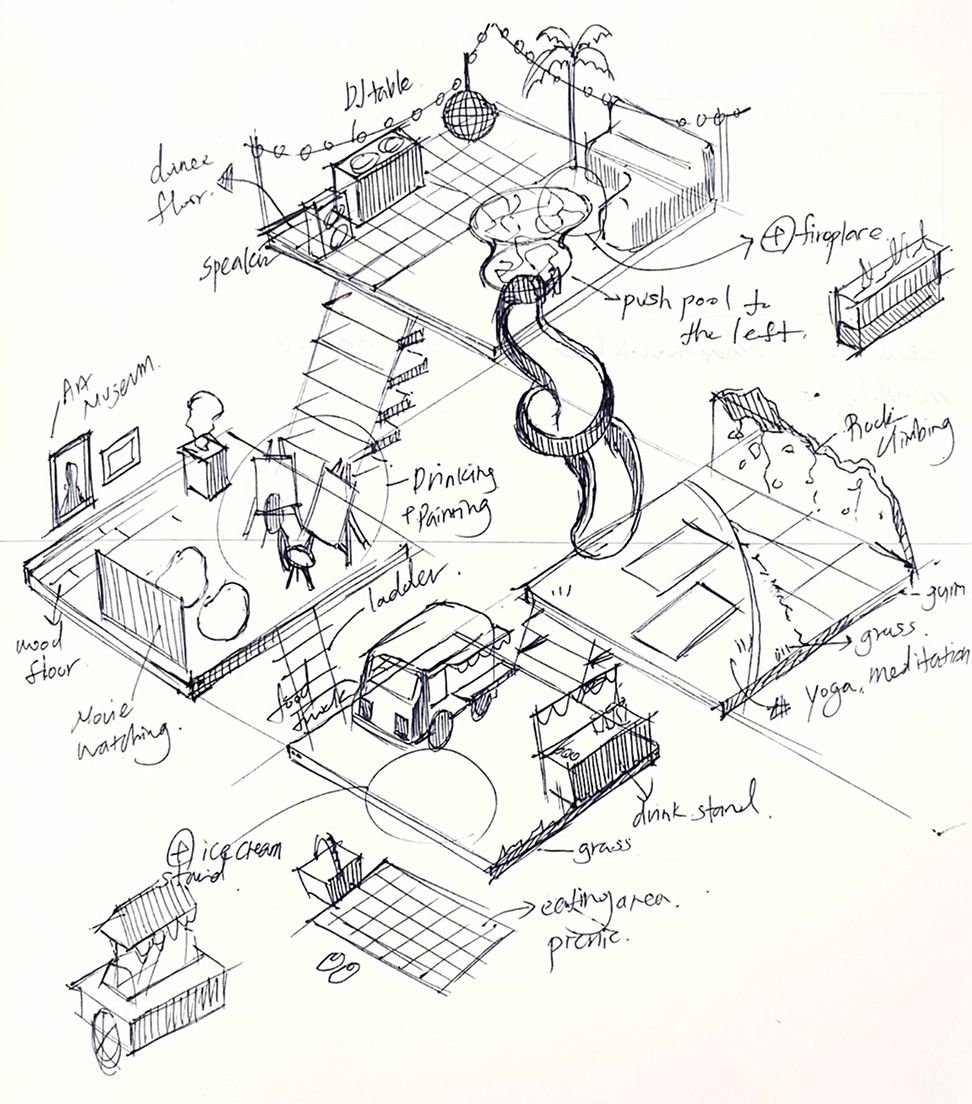 DJ table
dance
floor.
Speaker
+ fireplace
push pool to
the left.
Museum.
Rock
climbing
Drinking
+ Painting
ladder.
gym
wood
floor
grass.
yoga, meditation
food
truck
Movie
watching.
drink stand.
grass
+ ice cream
stand
eating area.
picnic.